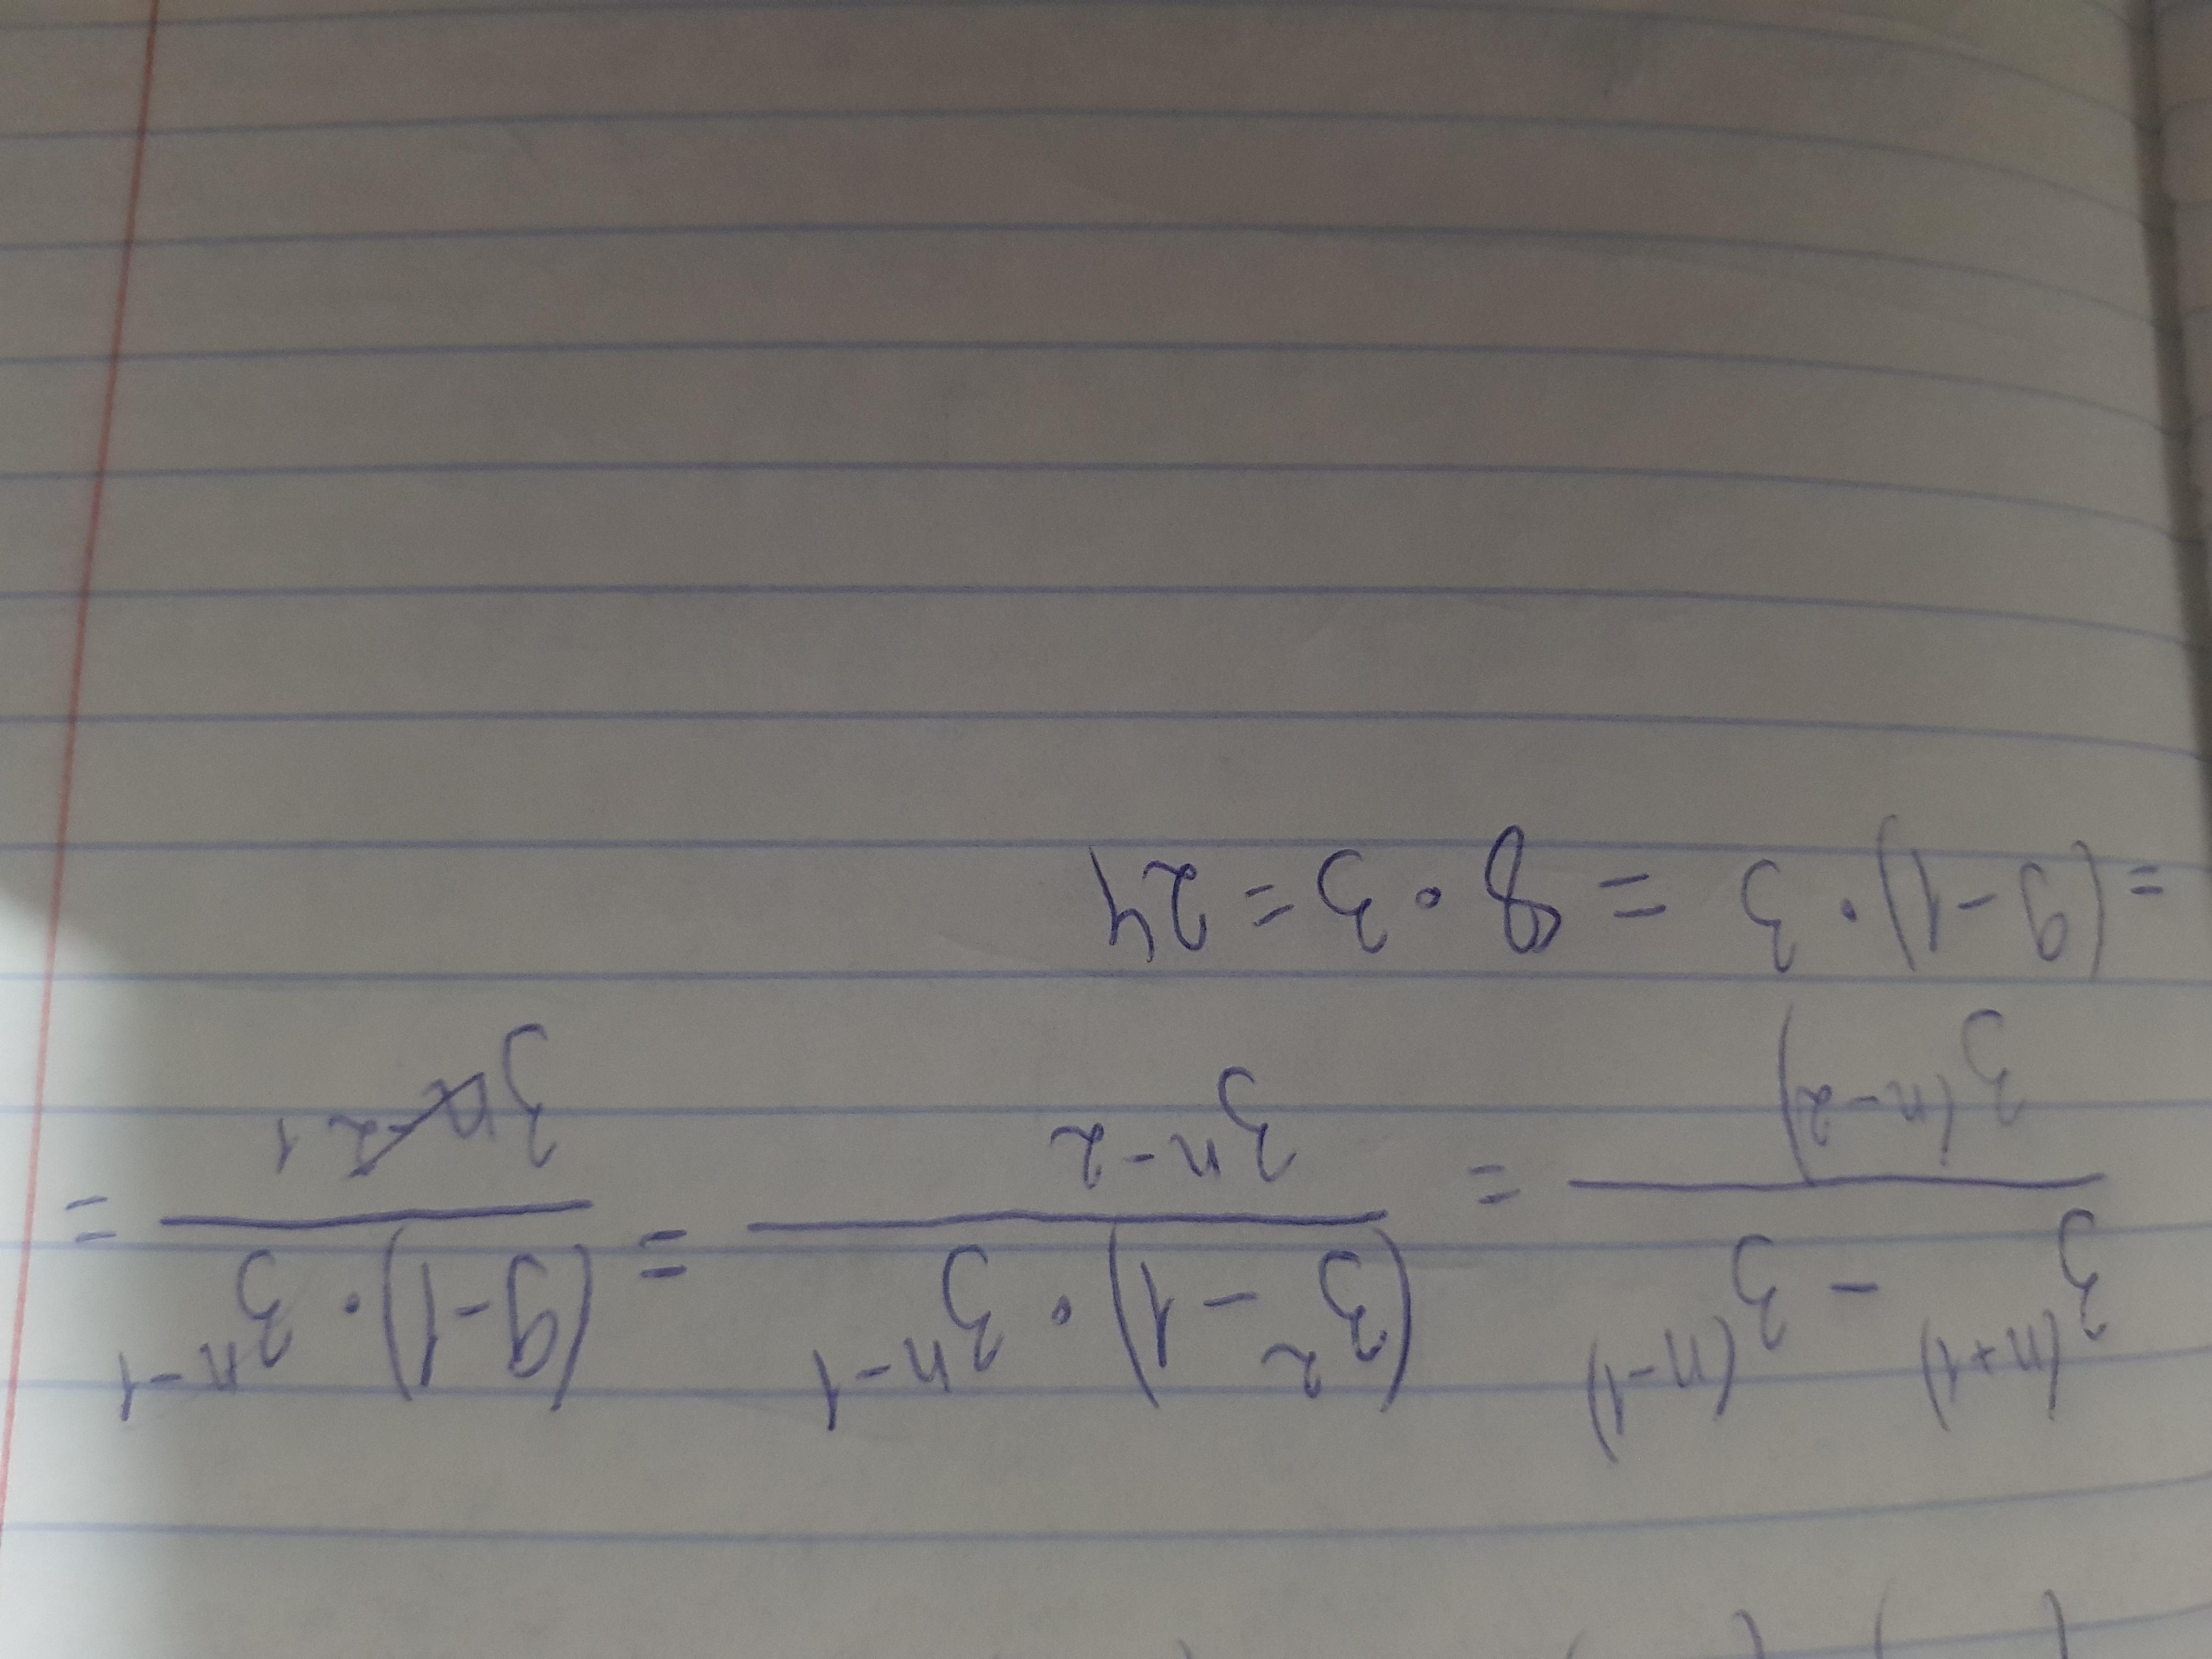 (3^(n+1) - 3^(n-1)) / 3^(n-2) = ((3^2 - 1) · 3^(n-1)) / 3^(n-2) = ((9-1) · 3^(n-1)) / 3^(n-2) 1 =
= (9-1) · 3 = 8 · 3 = 24